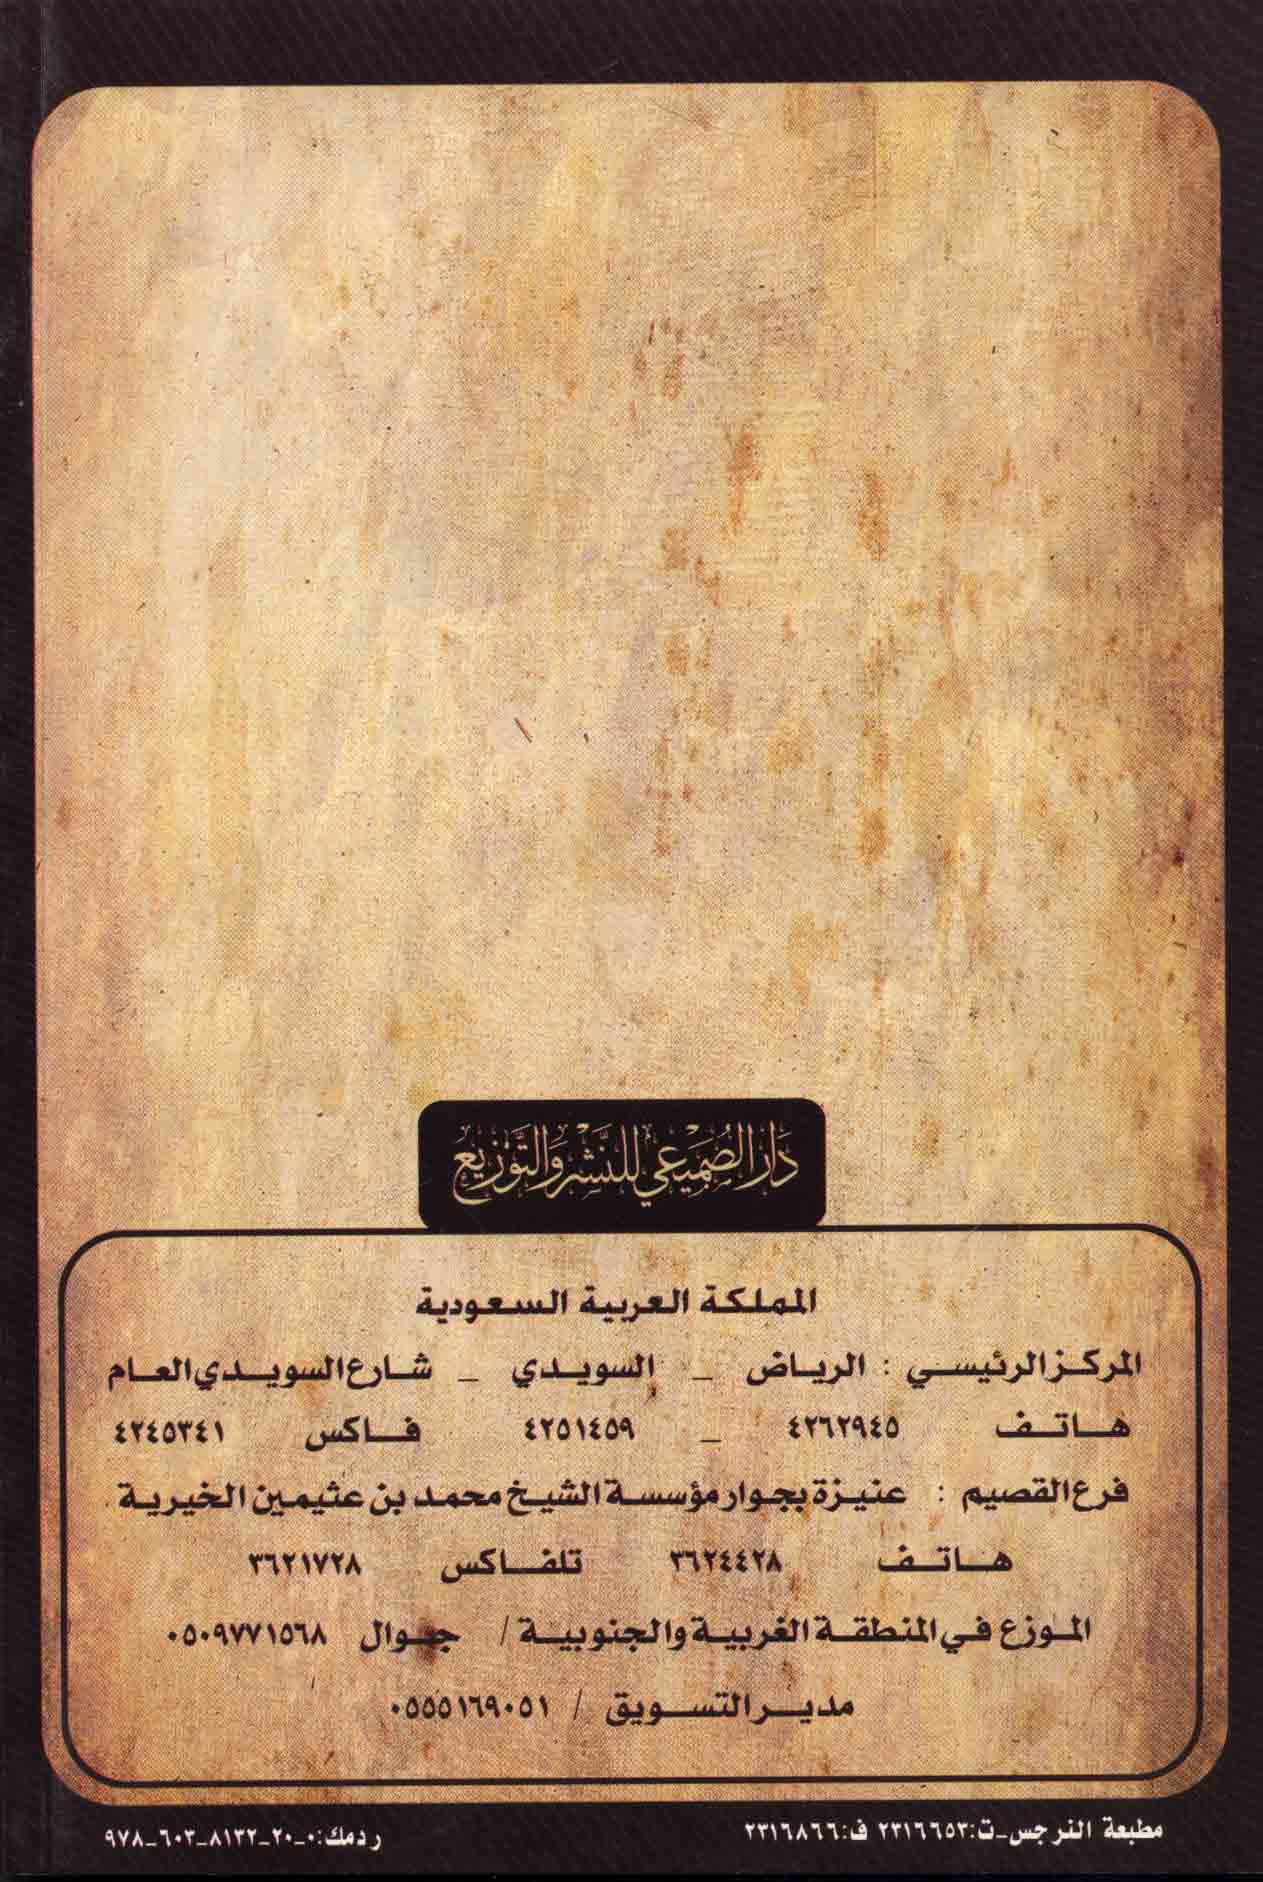 دَارُ الصُّمَيْعِي لِلنَّشْرِ وَالتَّوْزِيع
المملكة العربية السعودية
المركز الرئيسي : الرياض _ السويدي _ شارع السويدي العام
هاتف ٤٢٦٢٩٤٥ _ ٤٢٥١٤٥٩ فاكس ٤٢٤٥٣٤١
فرع القصيم : عنيزة بجوار مؤسسة الشيخ محمد بن عثيمين الخيرية
هاتف ٣٦٢٤٤٢٨ تلفاكس ٣٦٢١٧٢٨
الموزع في المنطقة الغربية والجنوبية / جوال ٠٥٠٩٧٧١٥٦٨
مدير التسويق / ٠٥٥٥١٦٩٠٥١
مطبعة النرجس_ت:٢٣١٦٦٥٣ ف:٢٣١٦٨٦٦
ردمك:٠_٢٠_٨١٣٢_٦٠٣_٩٧٨